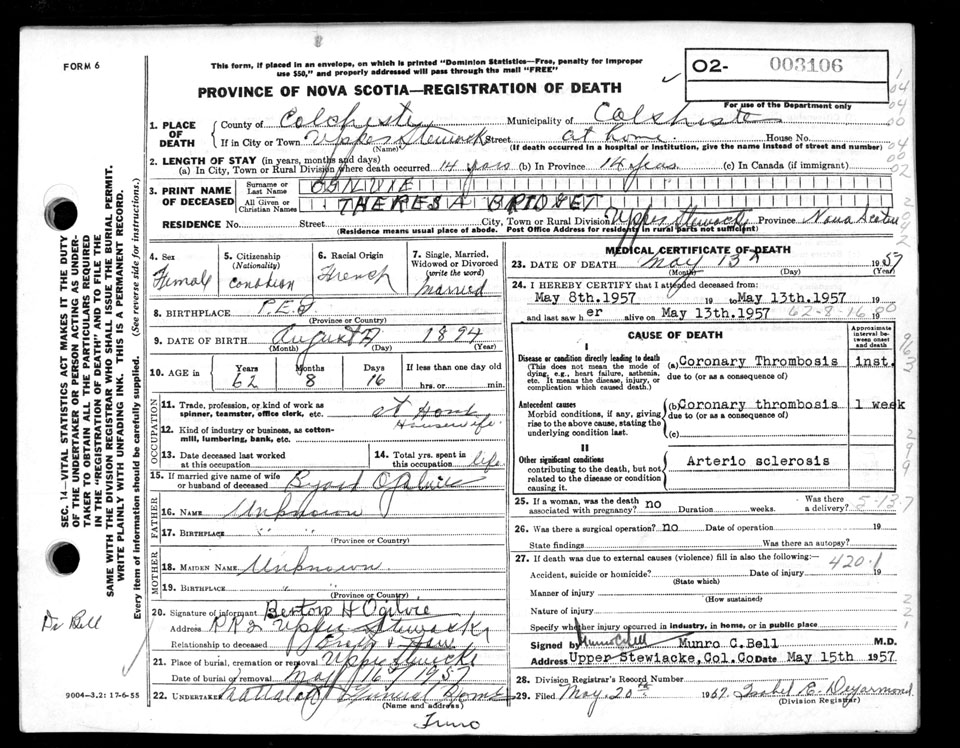 FORM 6
This form, if placed in an envelope, on which is printed "Dominion Statistics—Free, penalty for improper
use $50," and properly addressed will pass through the mail "FREE"
O2- 003106
For use of the Department only
PROVINCE OF NOVA SCOTIA—REGISTRATION OF DEATH
1. PLACE OF DEATH
County of Colchester Municipality of Colchester
If in City or Town Upper Stewiacke Street at home House No.
(Name) (If death occurred in a hospital or institution, give the name instead of street and number)
2. LENGTH OF STAY (in years, months and days)
(a) In City, Town or Rural Division where death occurred 14 years (b) In Province 14 years (c) In Canada (if immigrant)
3. PRINT NAME OF DECEASED
Surname or Last Name OGILVIE
All Given or Christian Names THERESA BRIDGET
RESIDENCE No. Street City, Town or Rural Division Upper Stewiacke Province Nova Scotia
(Residence means usual place of abode. Post Office Address for residents in rural parts not sufficient)
4. Sex
Female
5. Citizenship
(Nationality)
Canadian
6. Racial Origin
French
7. Single, Married,
Widowed or Divorced
(write the word)
Married
8. BIRTHPLACE P.E.I
(Province or Country)
9. DATE OF BIRTH August 1894
(Month) (Day) (Year)
10. AGE in
Years 62
Months 8
Days 16
If less than one day old
hrs. or min.
OCCUPATION
11. Trade, profession, or kind of work as
spinner, teamster, office clerk, etc. At Home
Housewife
12. Kind of industry or business, as cotton-
mill, lumbering, bank, etc.
13. Date deceased last worked
at this occupation
14. Total yrs. spent in
this occupation life
15. If married give name of wife
or husband of deceased Byard Ogilvie
FATHER
16. NAME Unknown
17. BIRTHPLACE " "
(Province or Country)
MOTHER
18. MAIDEN NAME Unknown
19. BIRTHPLACE " "
(Province or Country)
20. Signature of informant Berton H Ogilvie
Address RR2 Upper Stewiacke
Relationship to deceased
21. Place of burial, cremation or removal Upper Stewiacke
Date of burial or removal May 16 1957
22. UNDERTAKER Funeral Home
(Name and address)
Truro
MEDICAL CERTIFICATE OF DEATH
23. DATE OF DEATH May 13 1957
(Month) (Day) (Year)
24. I HEREBY CERTIFY that I attended deceased from:
May 8th.1957 19 to May 13th.1957 19
and last saw her alive on May 13th.1957 19
62-8-16
CAUSE OF DEATH
Approximate
interval
between onset
and death
I
Disease or condition directly leading to death
(This does not mean the mode of
dying, e.g., heart failure, asthenia,
etc. It means the disease, injury, or
complication which caused death.)
(a) Coronary Thrombosis inst.
due to (or as a consequence of)
Antecedent causes
Morbid conditions, if any, giving
rise to the above cause, stating the
underlying condition last.
(b) Coronary thrombosis 1 week
due to (or as a consequence of)
(c)
II
Other significant conditions
contributing to the death, but not
related to the disease or condition
causing it.
Arterio sclerosis
25. If a woman, was the death
associated with pregnancy? no Duration weeks. Was there
a delivery?
5-13-7
26. Was there a surgical operation? no Date of operation 19
State findings Was there an autopsy?
27. If death was due to external causes (violence) fill in also the following:—
420.1
Accident, suicide or homicide? Date of injury 19
(State which)
Manner of injury
(How sustained)
Nature of injury
Specify whether injury occurred in industry, in home, or in public place
Signed by Munro C Bell Munro C.Bell M.D.
Address Upper Stewiacke, Col.Co Date May 15th 1957
28. Division Registrar's Record Number
29. Filed May 20th 1957. Isabel E. Dejarmond
(Division Registrar)
SEC. 14—VITAL STATISTICS ACT MAKES IT THE DUTY
OF THE UNDERTAKER OR PERSON ACTING AS UNDER-
TAKER TO OBTAIN ALL THE PARTICULARS REQUIRED
IN THE "REGISTRATION OF DEATH" AND TO FILE THE
SAME WITH THE DIVISION REGISTRAR WHO SHALL ISSUE THE BURIAL PERMIT.
WRITE PLAINLY WITH UNFADING INK. THIS IS A PERMANENT RECORD.
Every item of information should be carefully supplied. (See reverse side for instructions.)
Dr Bell
9004-3.2: 17-6-55